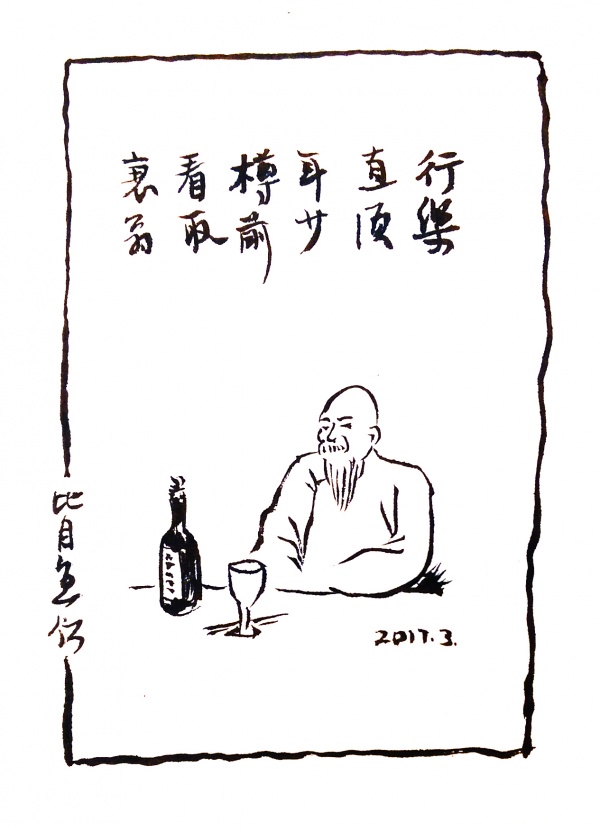 行樂
直须
年少
樽前
看取
衰翁
比目鱼
2017.3.